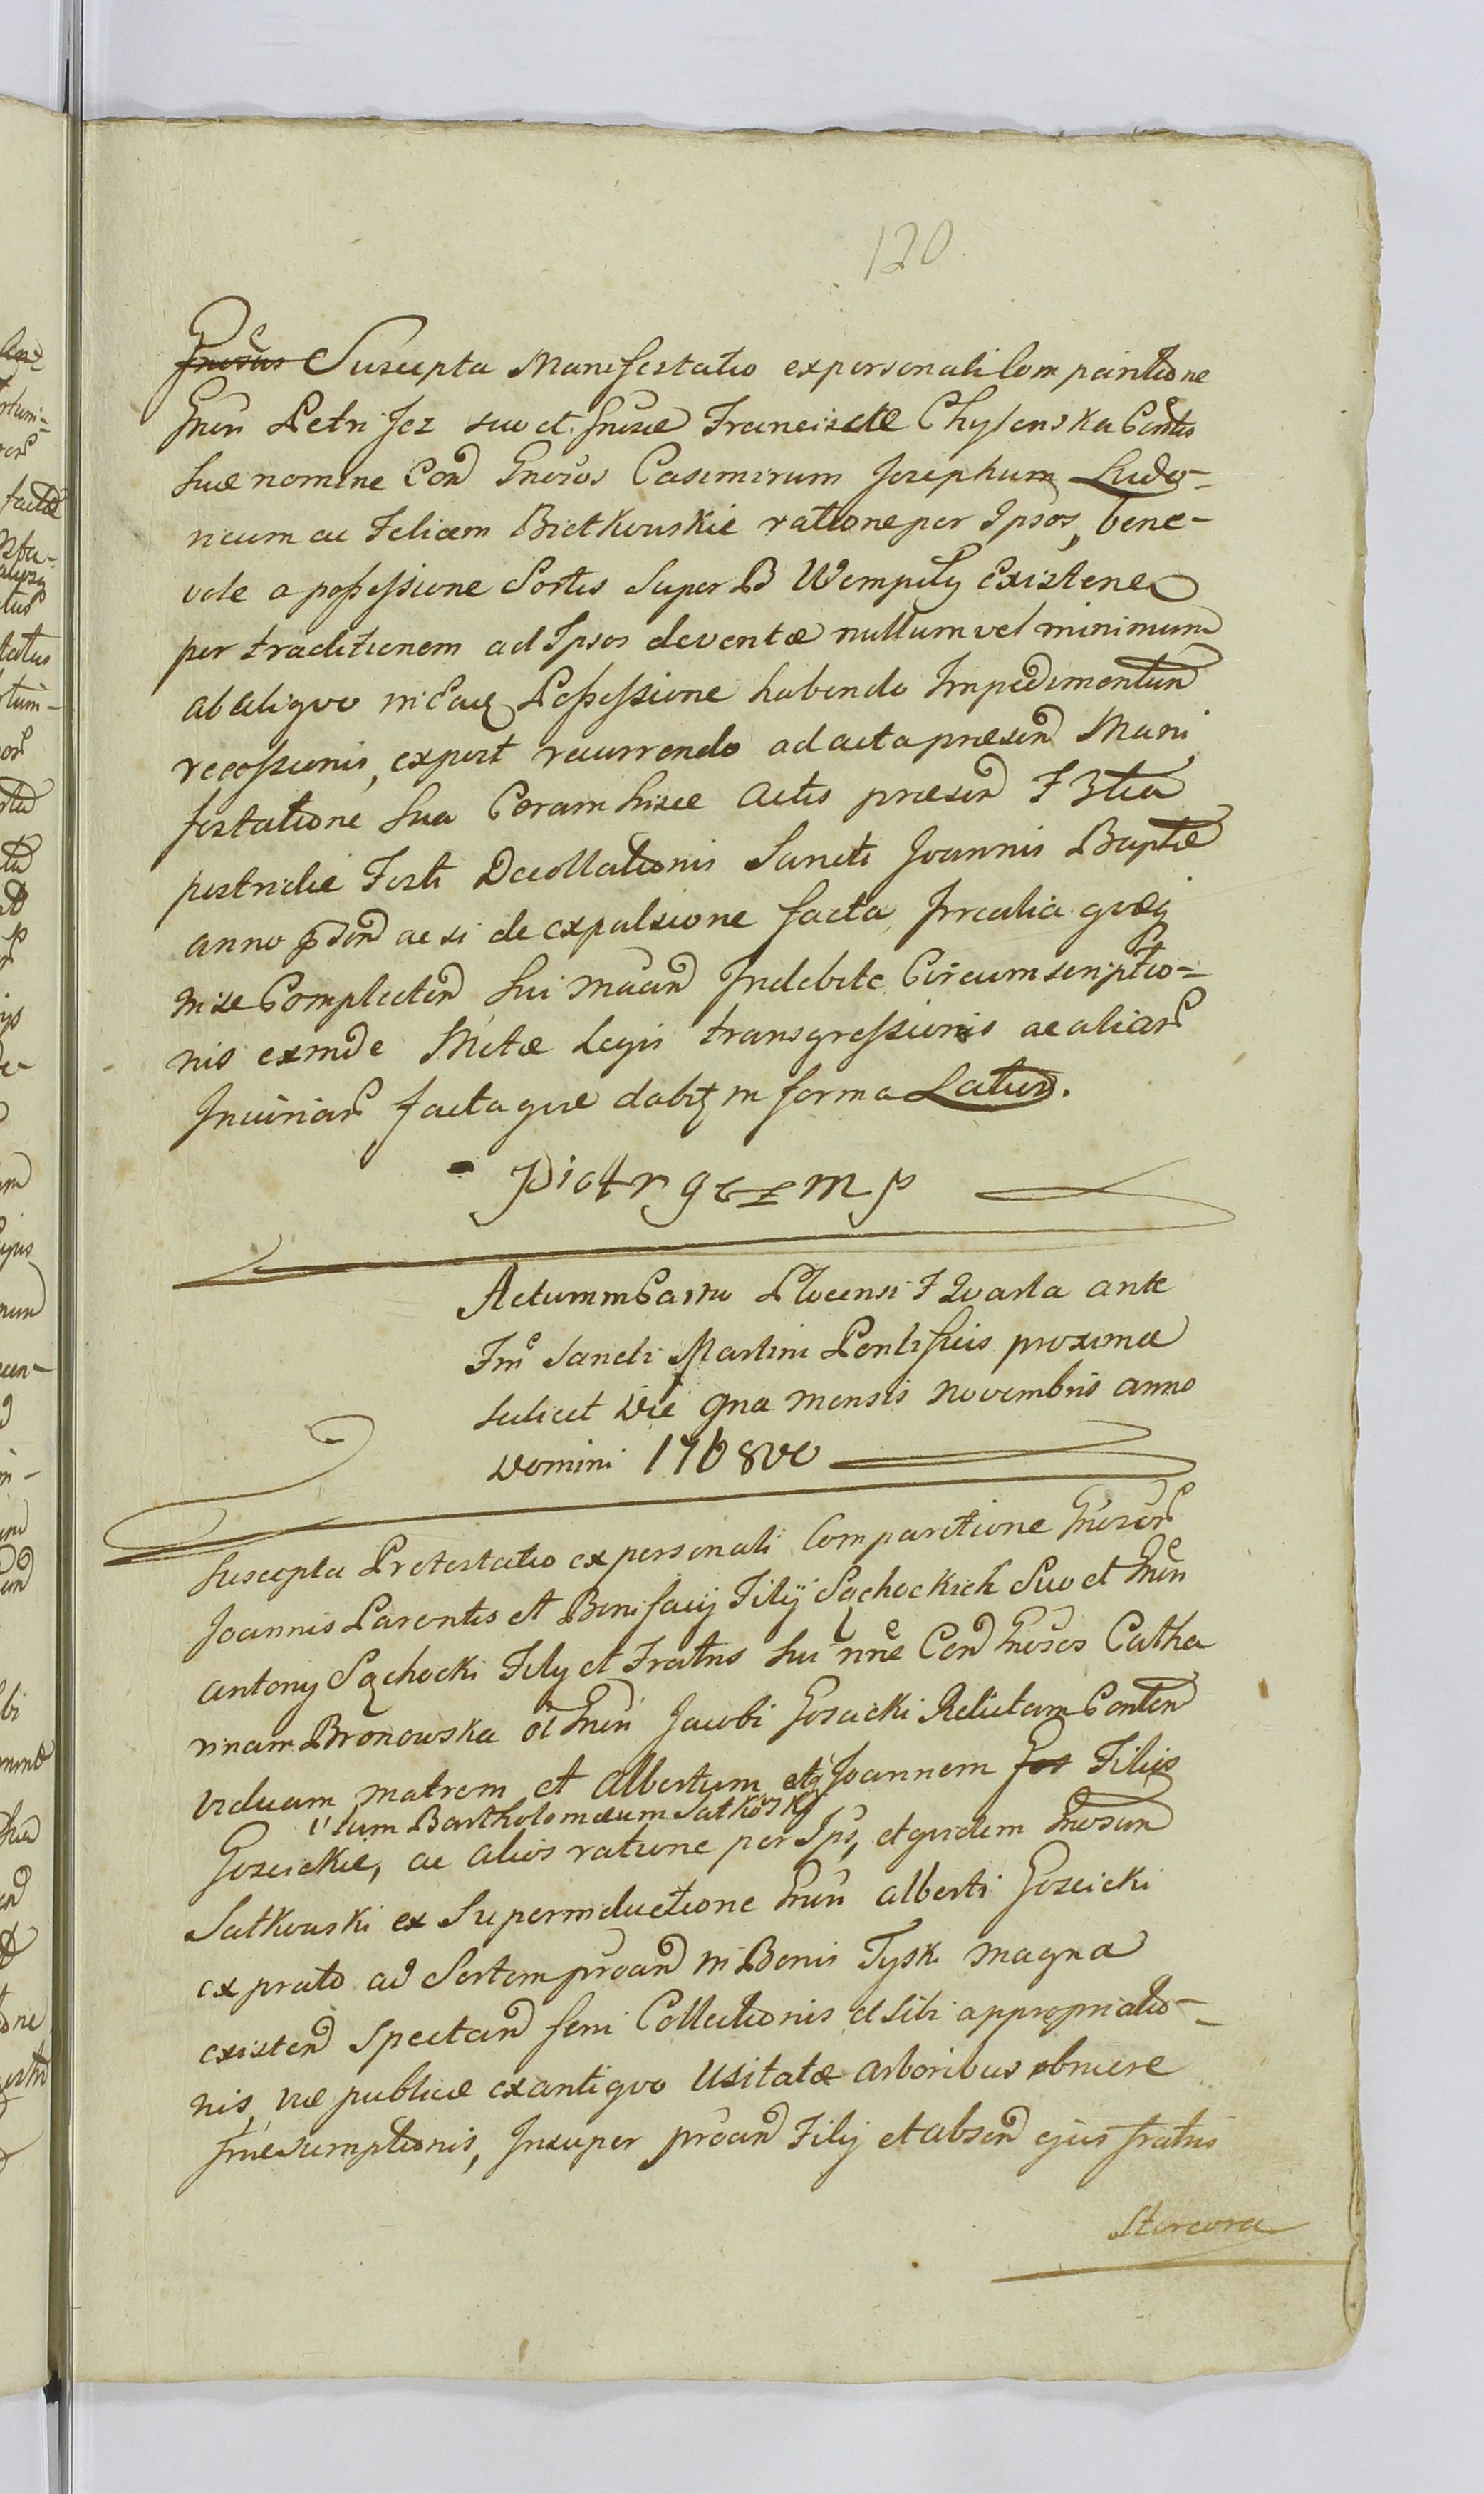 120
Gnosus Suscepta Manifestatio ex personali Compãritione
Gnen Petri Jez suo et Gnosæ Franciscæ Chylenska Contis
suæ nomine Con Gnosos Casimirum Josephum Ludo-
vicum ac Felicem Bietkowskie ratione per Ipsos, bene-
vole a possessione Sortis super B Wempily Existene
per traditionem ad Ipsos deventæ nullum vel minimum
ab aliquo in Eaq Possessione habendo Impedimentum
recessionis, expost recurrendo ad acta præsen Mani
festatione sua Coram hisce Actis præsen F 3tia
postridie Festi Decollationis Sancti Joannis Baptæ
anno præsen ac si de expulsione facta Jrrealia quæq
in se Complecten sui Mañ Indebite Circumscriptio-
nis exinde Metæ Legis transgressionis ac aliar
Injuriar facta quæ dabit in forma Latur.
- Piotr gez mp
Actum in Castro Plocensi F Quarta ante
Fm Sancti Martini Pontificis proxima
scilicet Die 9na Mensis Novembris anno
Domini 1768vo
Suscepta Protestatio ex personali Comparitione Gnosor
Joannis Parentis et Bonifacij Filij Sącheckich suo et Gnen
Antonij Sąchocki Filij et Fratris sui nne Con Gnosos Catha
rinam Bronowska ol Gnen Jacobi Goscicki Relictam Conten
viduam matrem et Albertum etq Joannem Gos Filios
u sum Bartholomæum Satkoski
Goscickie, ac alios ratione per Ips, et quidem Gnosum
Satkowski ex Superinductione Gnen Alberti Goscicki
ex prato ad Sortem proan in Bonis Tysk Magna
existen spectan feni Collectionis et sibi appropriatio-
nis, viæ publicæ ex antiquo Usitatæ arboribus obruere
præsumptionis, Insuper proan Filij et absen ejus fratris
Stercora